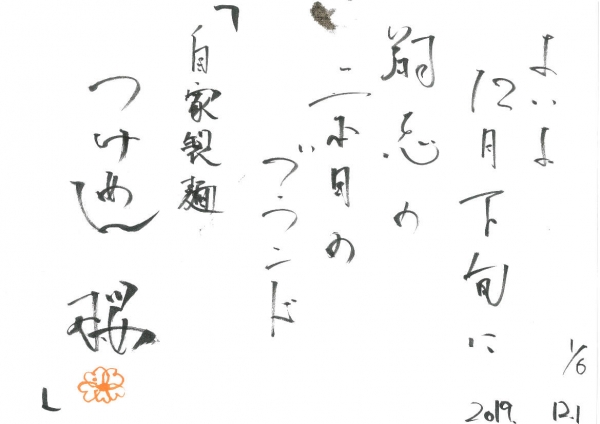 よいよ
12月下旬に
の
二本目の
ブランド
「自家製麺
つけめん 桜」
1/6
2019. 12.1